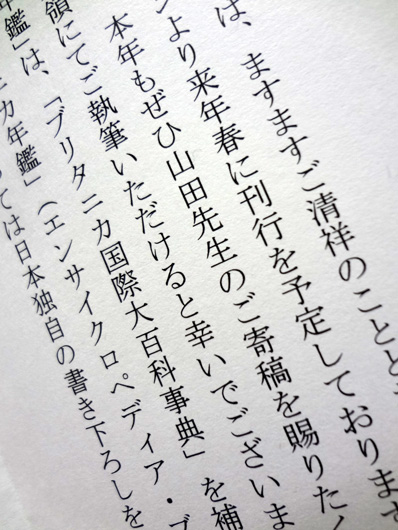 は、ますますご清祥のことと
より来年春に刊行を予定しております
本年もぜひ山田先生のご寄稿を賜りたく
領にてご執筆いただけると幸いでございま
年鑑」は、「ブリタニカ国際大百科事典」を補
ニカ年鑑」（エンサイクロペディア・ブ
ては日本独自の書き下ろしを